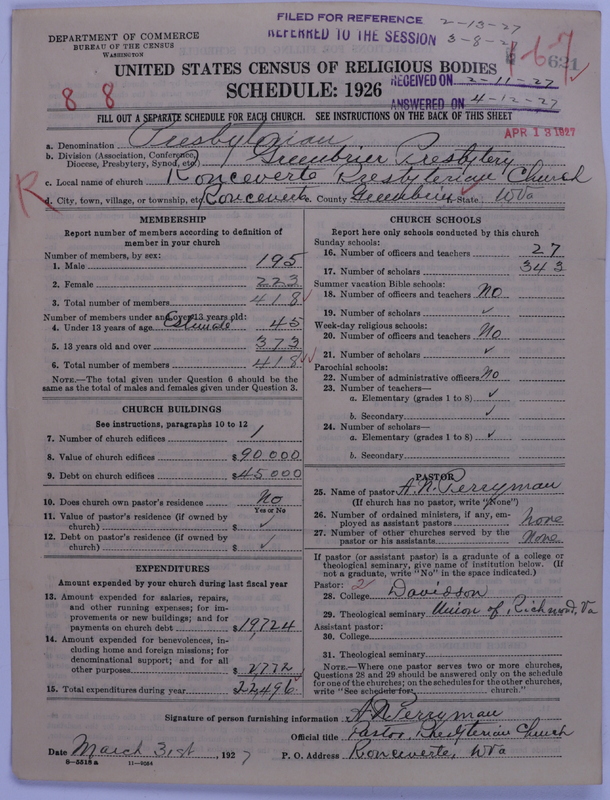 FILED FOR REFERENCE 2-13-27
REFERRED TO THE SESSION 3-8-27
DEPARTMENT OF COMMERCE
BUREAU OF THE CENSUS
WASHINGTON
1-6-7
621
UNITED STATES CENSUS OF RELIGIOUS BODIES
RECEIVED ON 2-11-27
SCHEDULE: 1926
8 8
ANSWERED ON 4-12-27
FILL OUT A SEPARATE SCHEDULE FOR EACH CHURCH. SEE INSTRUCTIONS ON THE BACK OF THIS SHEET
APR 13 1927
a. Denomination Presbyterian
b. Division (Association, Conference, Diocese, Presbytery, Synod, etc.) Greenbrier Presbytery
c. Local name of church Ronceverte Presbyterian Church
R
d. City, town, village, or township, etc. Ronceverte e. County Greenbrier State W Va
MEMBERSHIP
Report number of members according to definition of
member in your church
Number of members, by sex:
1. Male 195
2. Female 223
3. Total number of members 418
Number of members under and over 13 years old:
4. Under 13 years of age Estimate 45
5. 13 years old and over 373
6. Total number of members 418
NOTE.—The total given under Question 6 should be
same as the total of males and females given under Question 3.
CHURCH BUILDINGS
See instructions, paragraphs 10 to 12
7. Number of church edifices 1
8. Value of church edifices $90000
9. Debt on church edifices $45000
10. Does church own pastor's residence No
Yes or No
11. Value of pastor's residence (if owned by
church) $ ✓
12. Debt on pastor's residence (if owned by
church) $ ✓
EXPENDITURES
Amount expended by your church during last fiscal year
13. Amount expended for salaries, repairs,
and other running expenses; for im-
provements or new buildings; and for
payments on church debt $19724
14. Amount expended for benevolences, in-
cluding home and foreign missions; for
denominational support; and for all
other purposes $2772
15. Total expenditures during year $22496
CHURCH SCHOOLS
Report here only schools conducted by this church
Sunday schools:
16. Number of officers and teachers 27
17. Number of scholars 343
Summer vacation Bible schools:
18. Number of officers and teachers No
19. Number of scholars ✓
Week-day religious schools:
20. Number of officers and teachers No
21. Number of scholars ✓
Parochial schools:
22. Number of administrative officers No
23. Number of teachers—
a. Elementary (grades 1 to 8) ✓
b. Secondary ✓
24. Number of scholars—
a. Elementary (grades 1 to 8) ✓
b. Secondary
PASTOR
25. Name of pastor A. N. Perryman
(If church has no pastor, write "None")
26. Number of ordained ministers, if any, em-
ployed as assistant pastors None
27. Number of other churches served by the
pastor or his assistants None
If pastor (or assistant pastor) is a graduate of a college or
theological seminary, give name of institution below. (If
not a graduate, write "No" in the space indicated.)
Pastor: 2
28. College Davidson
29. Theological seminary Union of, Richmond, Va
Assistant pastor:
30. College
31. Theological seminary
NOTE.—Where one pastor serves two or more churches,
Questions 28 and 29 should be answered only on the schedule
for one of the churches; on the schedules for the other churches,
write "See schedule for church."
Signature of person furnishing information A N Perryman
Official title Pastor, Presbyterian Church
Date March 31st, 1927 P. O. Address Ronceverte, W Va
8-5518a 11-9054